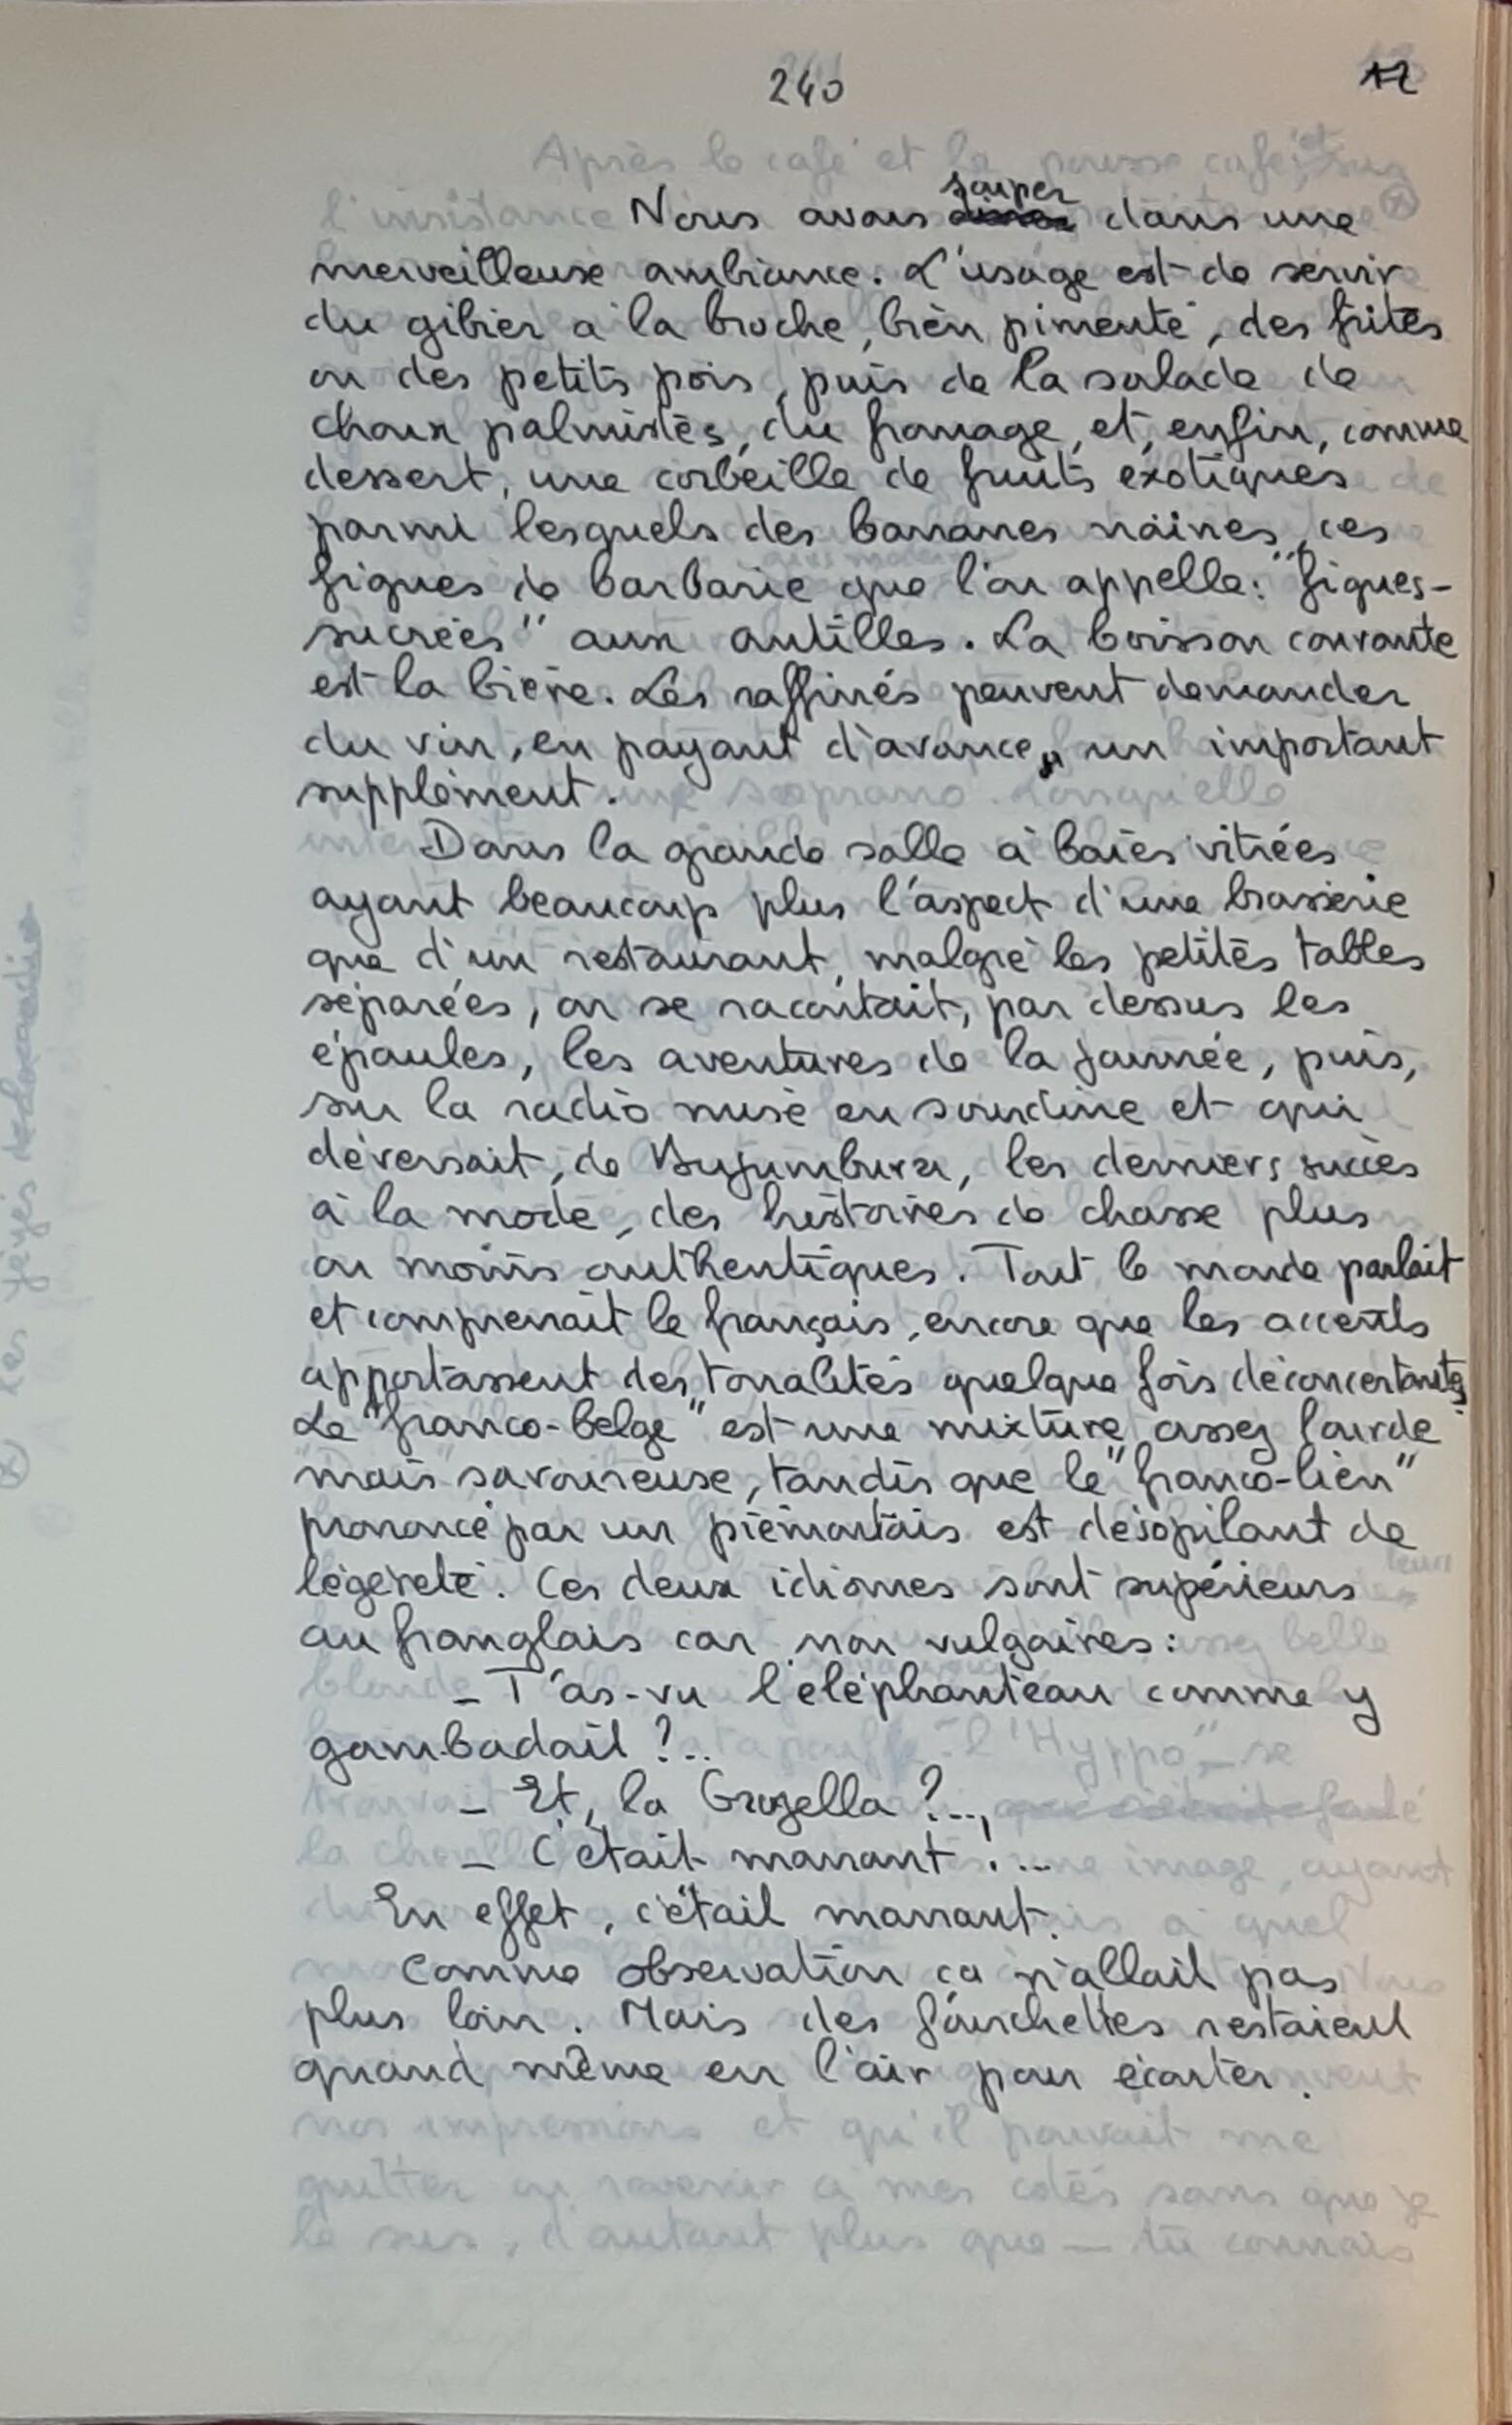 240
12
souper
Nous avons dans une
merveilleuse ambiance. L'usage est de servir
du gibier à la broche, bien pimenté, des frites
ou des petits pois, puis de la salade de
choux palmistes, du fromage, et, enfin, comme
dessert, une corbeille de fruits exotiques
parmi lesquels des bananes naines, ces
figues de barbarie que l'on appelle: "figues-
sucrées" aux antilles. La boisson courante
est la bière. Les raffinés peuvent demander
du vin, en payant d'avance, un important
supplément.
Dans la grande salle à baies vitrées
ayant beaucoup plus l'aspect d'une brasserie
que d'un restaurant, malgré les petites tables
séparées, on se racontait, par dessus les
épaules, les aventures de la journée, puis,
sur la radio mise en sourdine et qui
déversait, de Bujumbura, les derniers succès
à la mode, des histoires de chasse plus
ou moins authentiques. Tout le monde parlait
et comprenait le français, encore que les accents
apportassent des tonalités quelque fois déconcertantes.
Le "franco-belge" est une mixture assez lourde
mais savoureuse, tandis que le "franco-lien"
prononcé par un piémontais est désopilant de
légèreté. Ces deux idiomes sont supérieurs
au franglais car non vulgaires:
- T'as-vu l'éléphanteau comme y
gambadait ?..
- Et, la Grozella ?...
- C'était marrant !...
En effet, c'était marrant.
Comme observation ça n'allait pas
plus loin. Mais des fourchettes restaient
quand même en l'air pour écouter.